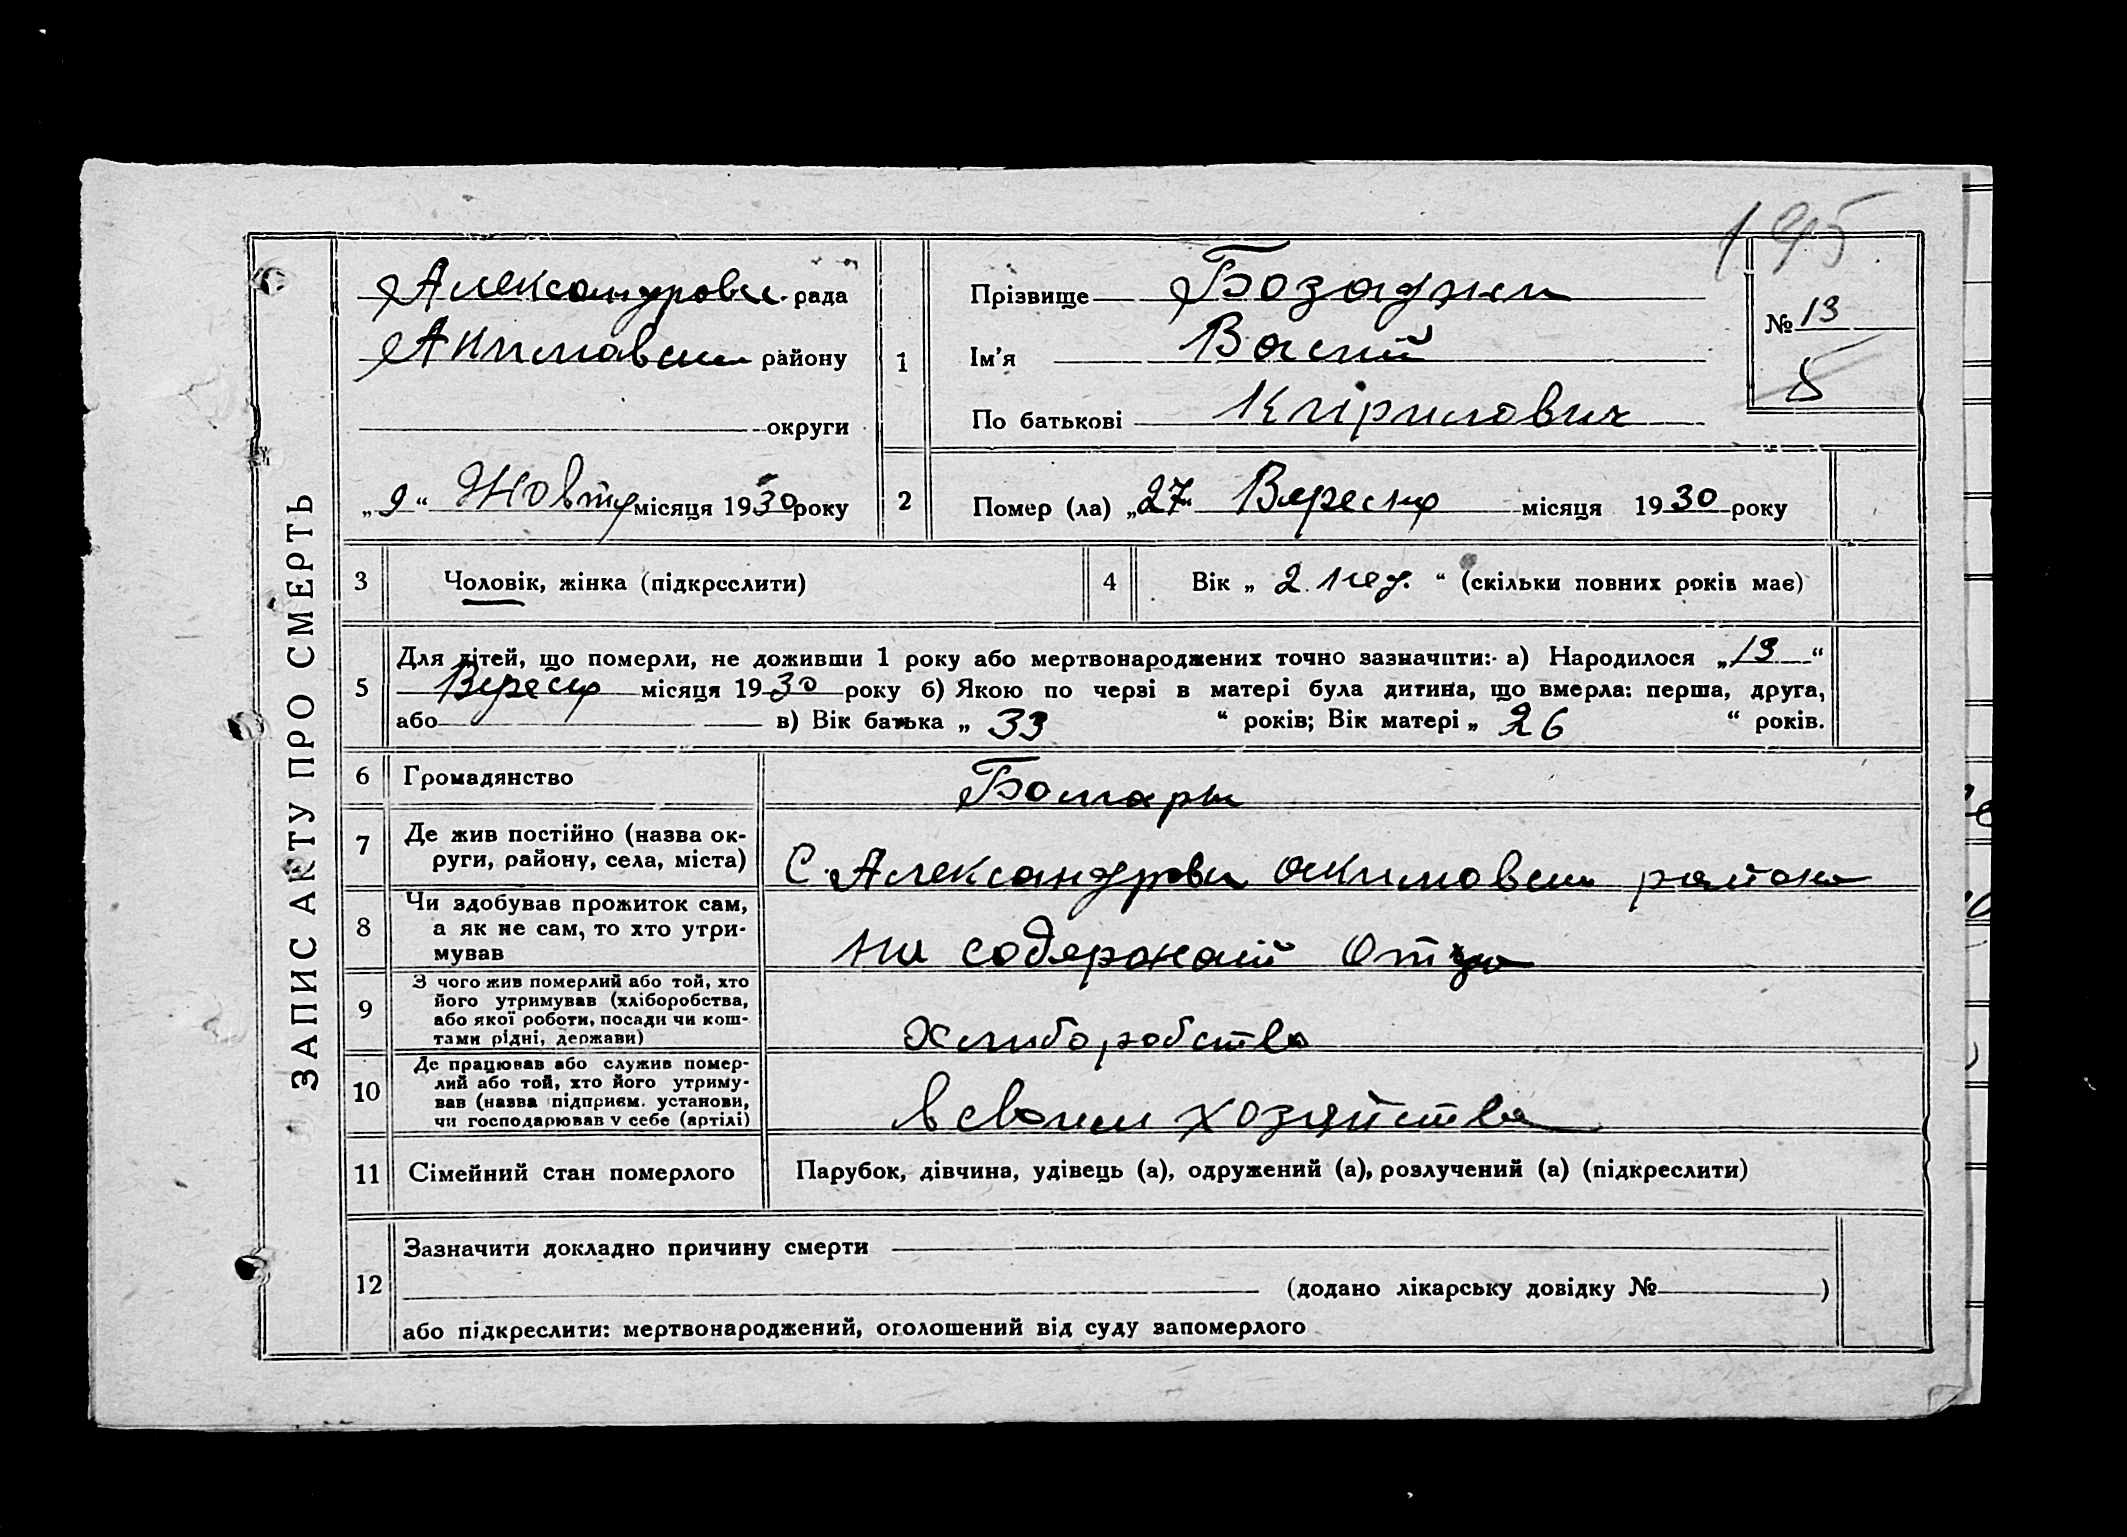 195
ЗАПИС АКТУ ПРО СМЕРТЬ
Александровск. рада
Акимовски району
округи
„9“ Жовтня місяця 1930 року
1
Прізвище Бозаджи
Ім'я Васили
По батькові Кирилович
№ 13
5
2 Помер (ла) „27“ Вересня місяця 1930 року
3 Чоловік, жінка (підкреслити)
4 Вік „ 2 нед. “ (скільки повних років має)
5 Для дітей, що померли, не доживши 1 року або мертвонароджених точно зазначити: а) Народилося „13“
Вересня місяця 1930 року б) Якою по черзі в матері була дитина, що вмерла: перша, друга,
або в) Вік батька „ 33 “ років; Вік матері „ 26 “ років.
6 Громадянство Болгары
7 Де жив постійно (назва ок-
руги, району, села, міста)
С. Александровка Акимовски района
8 Чи здобував прожиток сам,
а як не сам, то хто утри-
мував
на содержаній Отца
9 З чого жив померлий або той, хто
його утримував (хліборобства,
або якої роботи, посади чи кош-
тами рідні, держави)
Хлиборобство
10 Де працював або служив помер-
лий або той, хто його утриму-
вав (назва підприєм. установи,
чи господарював у себе (артілі)
в своим хозяйстве
11 Сімейний стан померлого Парубок, дівчина, удівець (а), одружений (а), розлучений (а) (підкреслити)
12 Зазначити докладно причину смерти
(додано лікарську довідку № )
або підкреслити: мертвонароджений, оголошений від суду запомерлого